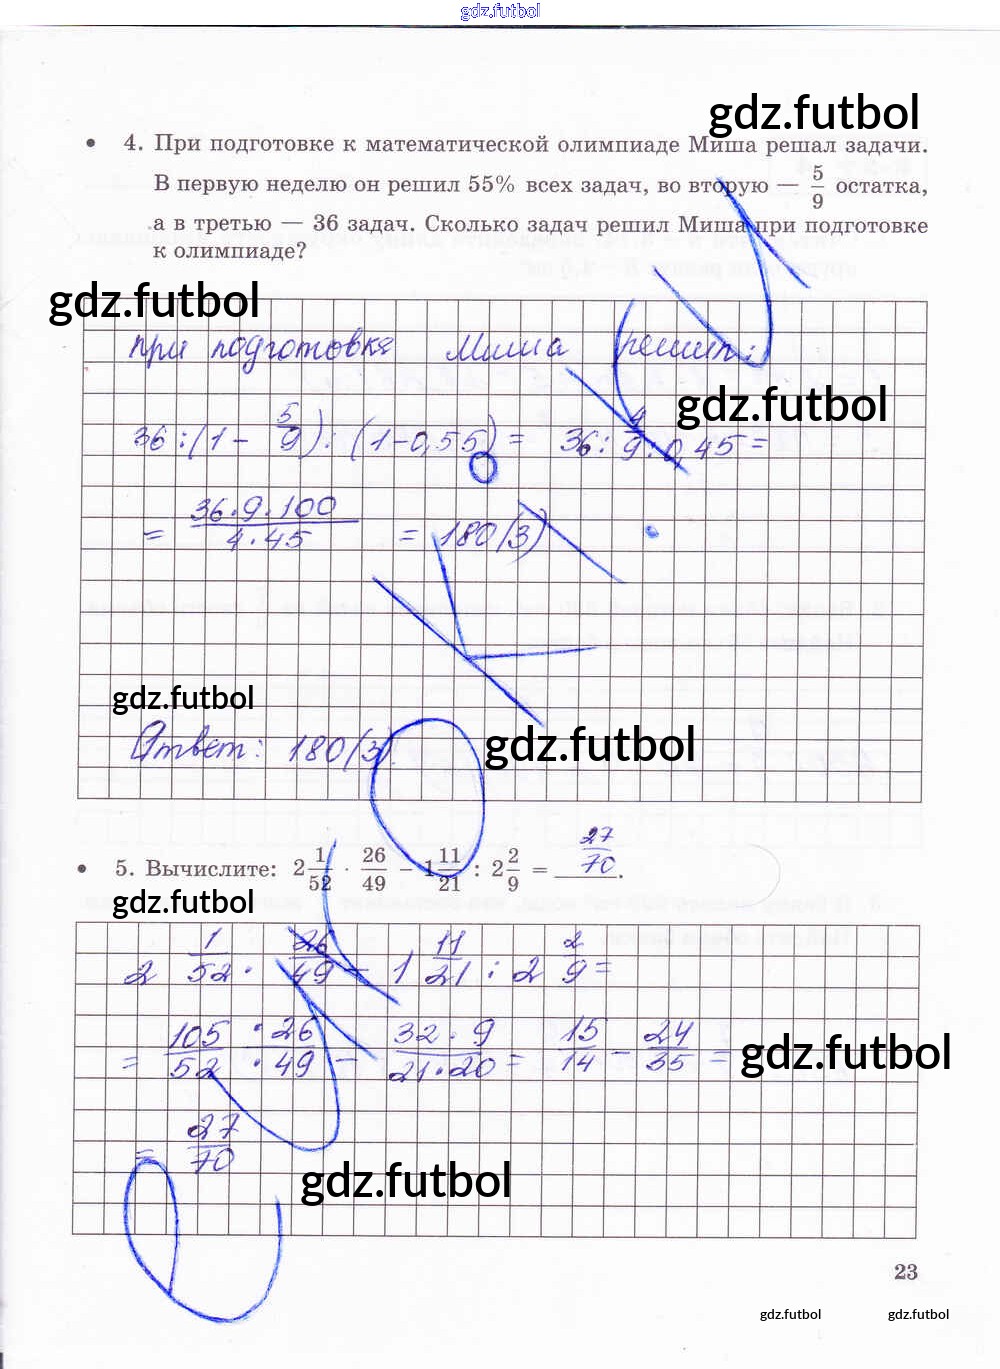 gdz.futbol
gdz.futbol
• 4. При подготовке к математической олимпиаде Миша решал задачи.
В первую неделю он решил 55% всех задач, во вторую — 5/9 остатка,
а в третью — 36 задач. Сколько задач решил Миша при подготовке
к олимпиаде?
gdz.futbol
При подготовке Миша решил:
gdz.futbol
36 : (1 - 5/9) : (1 - 0,55) = 36 : 4/9 : 0,45 =
= 36·9·100/4·45 = 180 (з)
gdz.futbol
gdz.futbol
Ответ: 180 (з).
• 5. Вычислите: 2 1/52 · 26/49 − 1 11/21 : 2 2/9 = 27/70.
gdz.futbol
2 1/52 · 26/49 - 1 11/21 : 2 2/9 =
= 105·26/52·49 - 32·9/21·20 = 15/14 - 24/35 =
gdz.futbol
= 27/70
gdz.futbol
23
gdz.futbol gdz.futbol